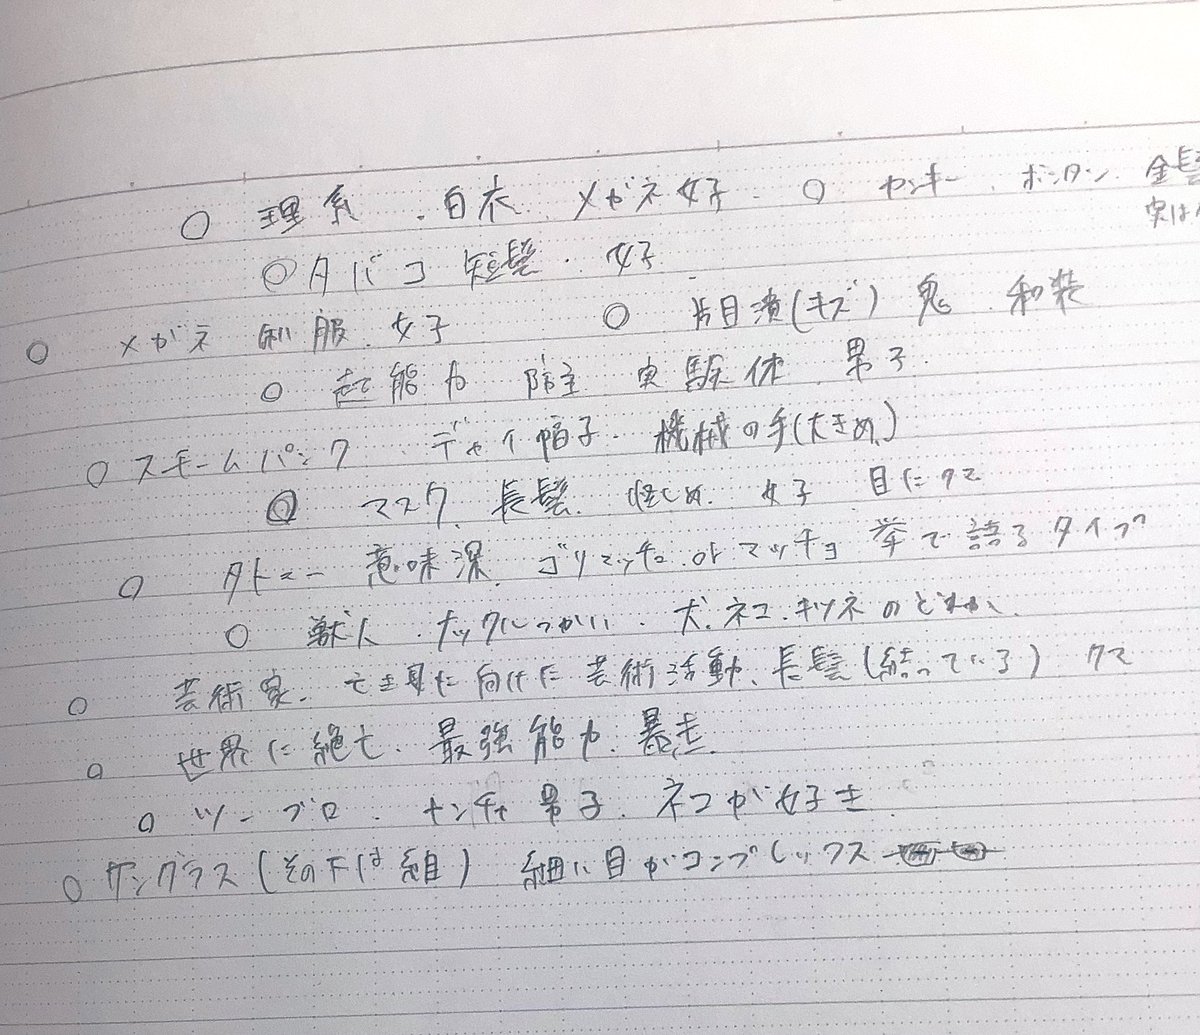 ○ 理系 . 白衣 . メガネ女子 . ○ ヤンキー . ボンタン . 金髪
実は
◎タバコ 短髪 . 女子
○ メガネ 制服 . 女子 ○ 片目潰(キズ) 鬼 . 和装
○ 超能力 防主 実験体 . 男子 .
○ スチームパンク . デカイ帽子 . 機械の手(大きめ)
◎ マスク . 長髪 . 怪しめ . 女子 目にクマ
○ タトゥー 意味深 . ゴリマッチョ or マッチョ 拳で語るタイプ
○ 獣人 . ナックルつかい . 犬 . ネコ . キツネのどれか .
○ 芸術家 . 亡き母に向けた芸術活動 . 長髪(結っている) クマ
○ 世界に絶亡 . 最強能力 . 暴走 .
○ ツーブロ . ヤンチャ男子 . ネコが好き
○ サングラス(その下は細目) 細い目がコンプレックス